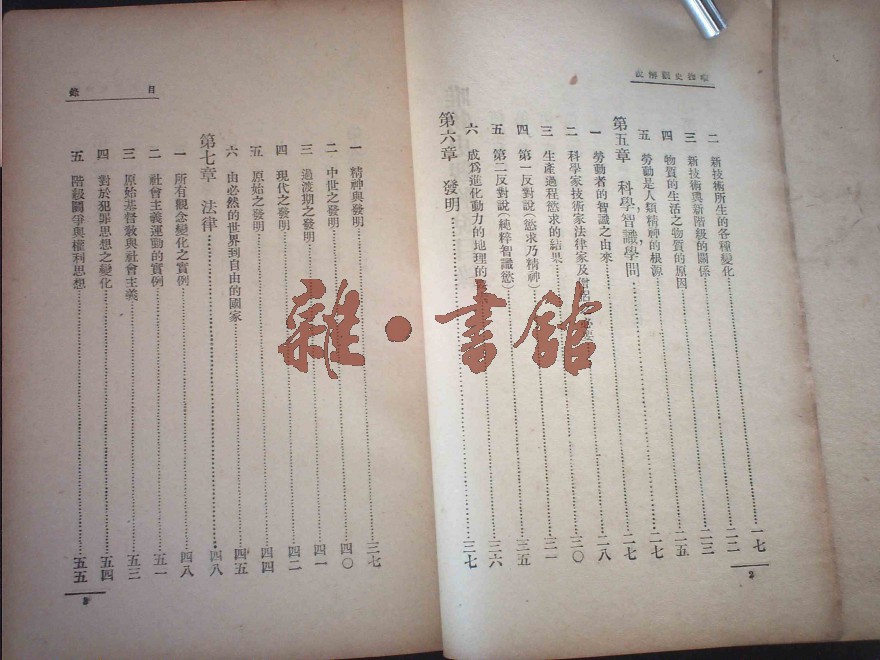 唯物史觀解說
二 新技術所生的各種變化 一七
三 新技術與新階級的關係 二二
四 物質的生活之物質的原因 二三
五 勞動是人類精神的根源 二五
第五章 科學,智識,學問 二七
一 勞動者的智識之由來 二七
二 科學家技術家法律家及 二八
三 生產過程慾求的結果 三〇
四 第一反對說(慾求乃精神) 三一
五 第二反對說(純粹智識慾) 三五
六 成爲進化動力的地理的 三六
第六章 發明 三七
2
目錄
一 精神與發明 三七
二 中世之發明 四〇
三 過渡期之發明 四一
四 現代之發明 四二
五 原始之發明 四四
六 由必然的世界到自由的國家 四五
第七章 法律 四八
一 所有觀念變化之實例 四八
二 社會主義運動的實例 五一
三 原始基督敎與社會主義 五三
四 對於犯罪思想之變化 五四
五 階級鬪爭與權利思想 五五
3
雜·書館